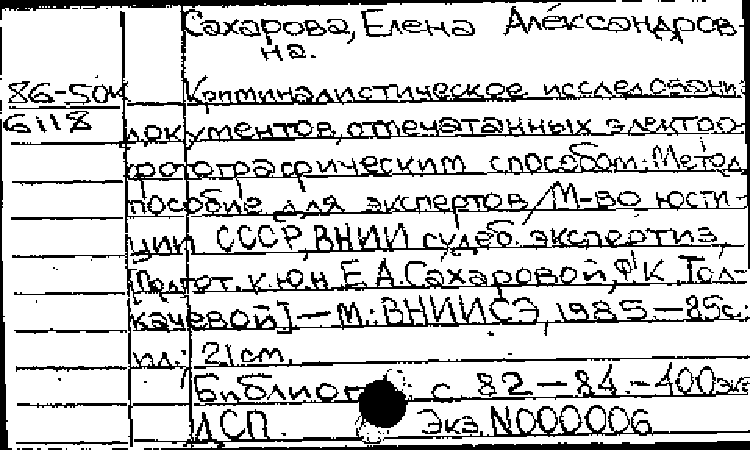 Сахарова, Елена Александров-
на.
86-50м Криминалистическое исследовани
6118
документов, отпечатанных электро-
фотографическим способом: Метод.
пособие для экспертов / М-во юсти-
ции СССР, ВНИИ судеб. экспертиз,
[Подгот. к.ю.н. Е.А. Сахаровой, Ф.К. Тол-
качевой] — М.: ВНИИСЭ, 1985 — 85с.:
ил.; 21 см.
Библиог с 82-84. - 400 экз
ДСП. Экз. N000006